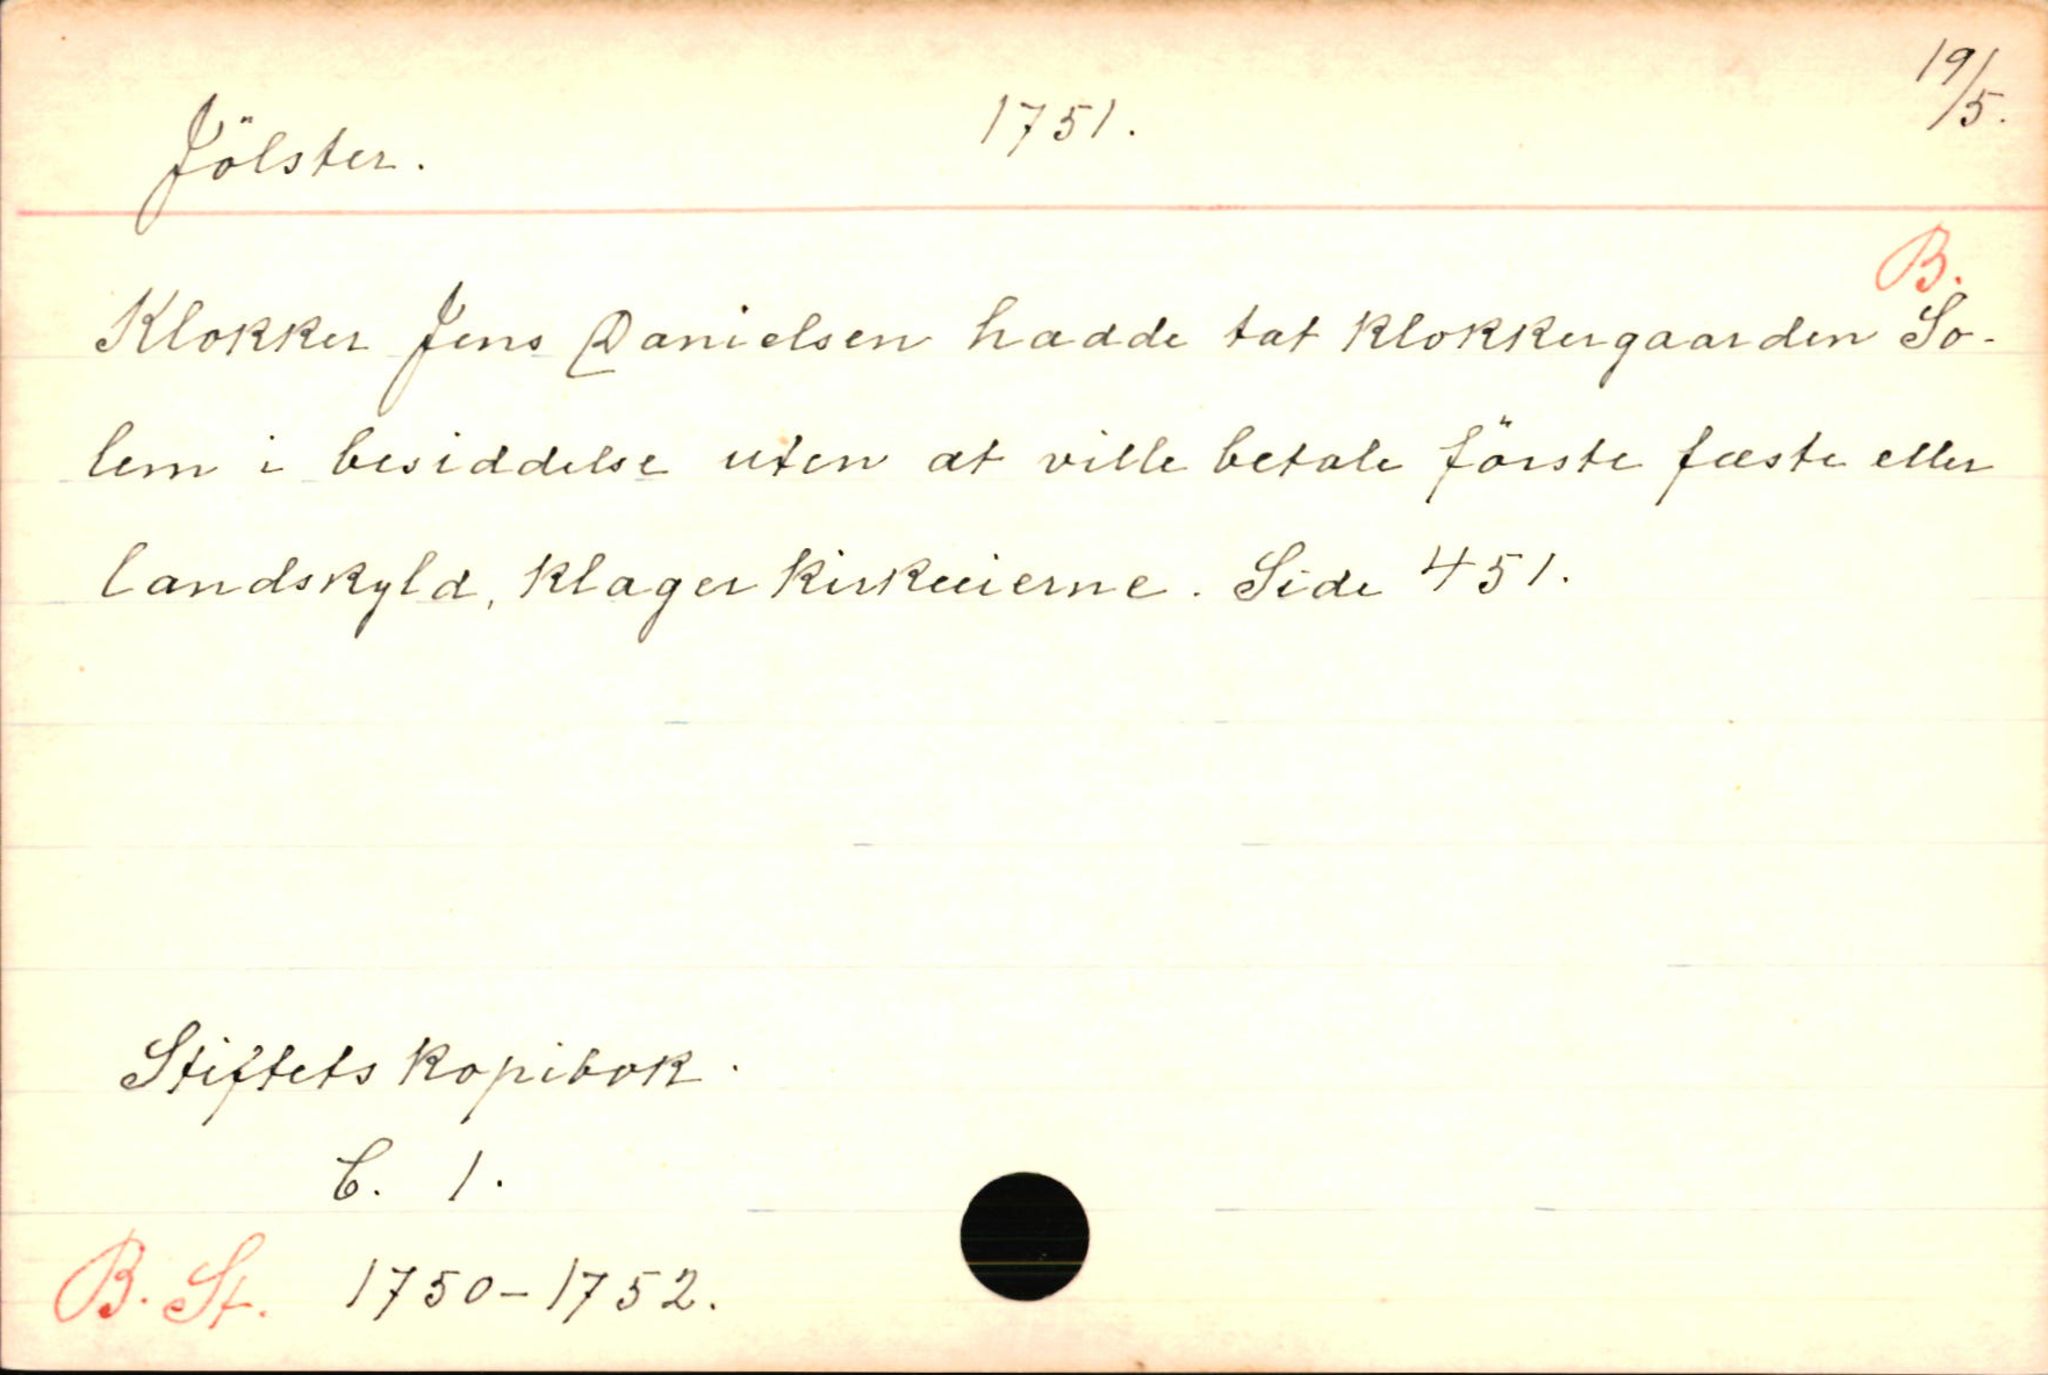 Jölster.
1751.
19/5.
B.
Klokker Jens Danielsen hadde tat klokkergaarden So-
lem i besiddelse uten at ville betale förste fæste eller
landskyld, klager kirkeeierne. Side 451.
Stiftets kopibok.
C. 1.
B. St. 1750-1752.